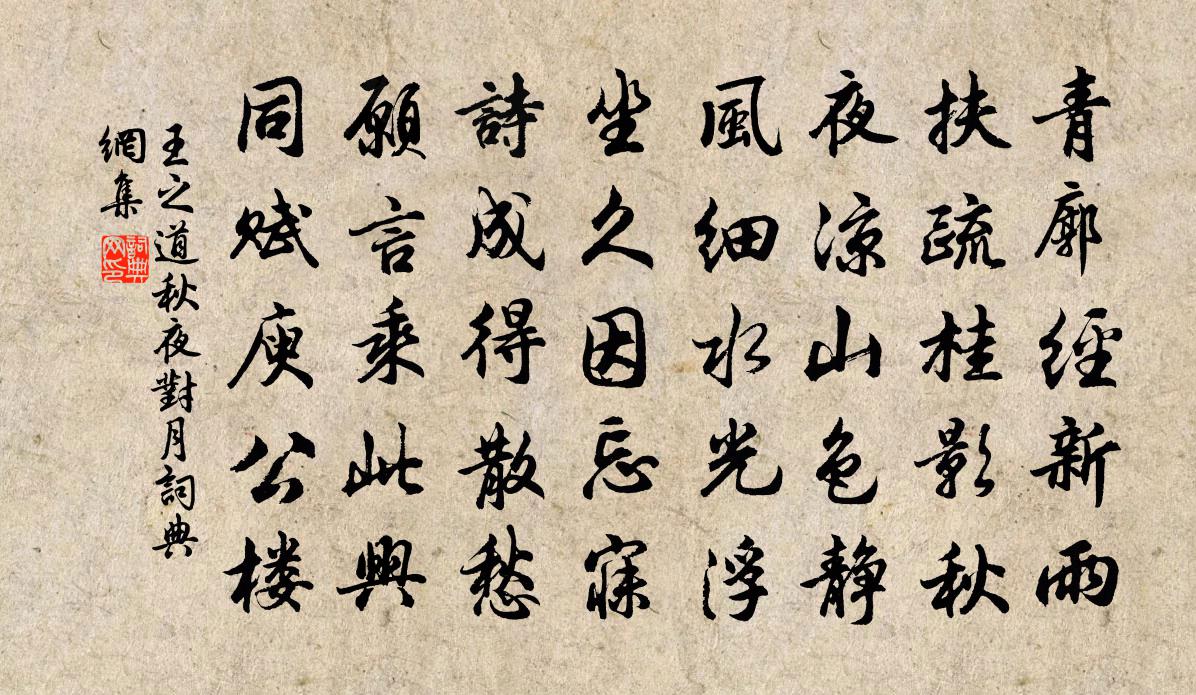 青廓經新雨
扶疏桂影秋
夜涼山色靜
風細水光浮
坐久因忘寐
詩成得散愁
願言乘此興
同賦庾公楼
王之道秋夜對月詞典
網集
詞典
网印